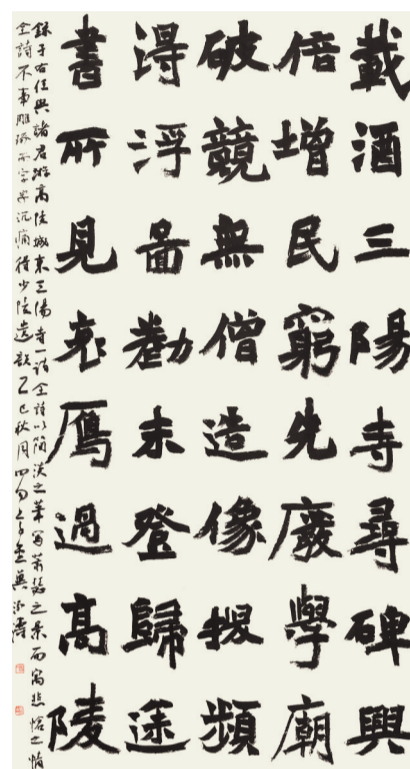 載酒三陽寺尋碑興
倍增民窮先廢學廟
破競無僧造像搜頻
得浮啚勸未登歸途
書所見哀鴈過高陵
錄于右任與諸君游高陵城東三陽寺一詩全詩以簡淡之筆寫蕭瑟之景而寓悲愴之情
全詩不事雕琢而字字沉痛得少陵遺韻乙巳秋月